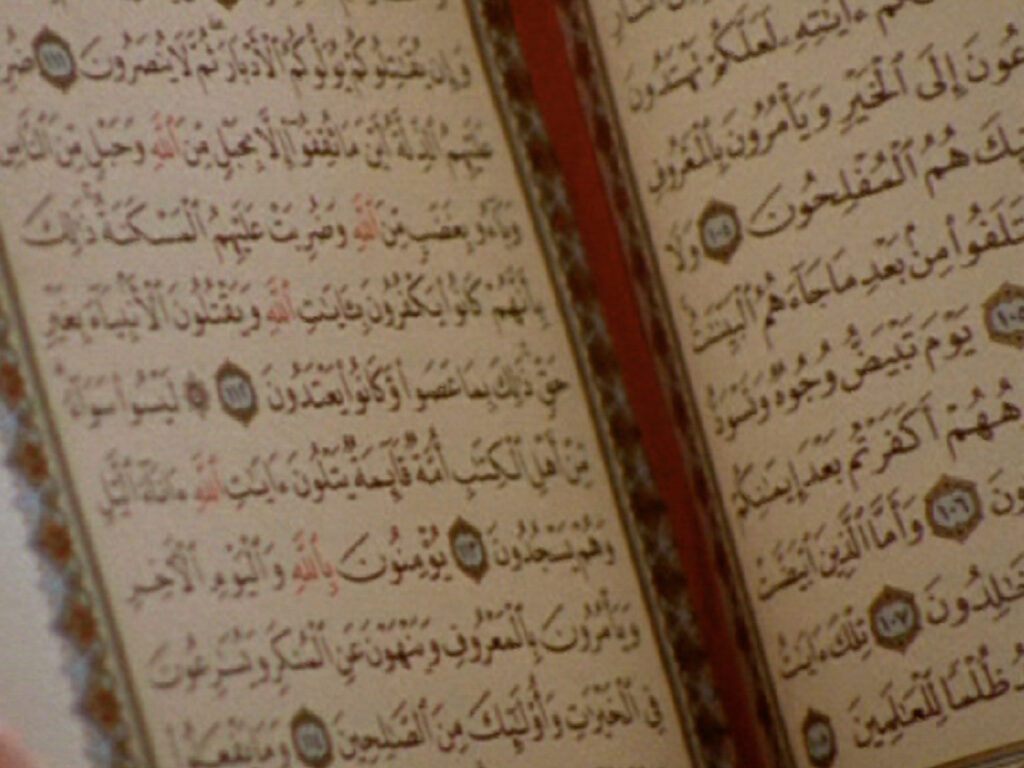 ءَايَٰتِهِۦ لَعَلَّكُمْ تَهْتَدُونَ
عُونَ إِلَى ٱلْخَيْرِ وَيَأْمُرُونَ بِٱلْمَعْرُوفِ
ئِكَ هُمُ ٱلْمُفْلِحُونَ ١٠٤ وَلَا
تَلَفُوا۟ مِنۢ بَعْدِ مَا جَآءَهُمُ ٱلْبَيِّنَٰتُ
١٠٥ يَوْمَ تَبْيَضُّ وُجُوهٌ وَتَسْوَدُّ
هُهُمْ أَكَفَرْتُم بَعْدَ إِيمَٰنِكُمْ
ونَ ١٠٦ وَأَمَّا ٱلَّذِينَ ٱبْيَضَّتْ
خَٰلِدُونَ ١٠٧ تِلْكَ ءَايَٰتُ
ظُلْمًا لِّلْعَٰلَمِينَ ١٠٨
وَإِن يُقَٰتِلُوكُمْ يُوَلُّوكُمُ ٱلْأَدْبَارَ ثُمَّ لَا يُنصَرُونَ ١١١ ضُرِ
عَلَيْهِمُ ٱلذِّلَّةُ أَيْنَ مَا ثُقِفُوٓا۟ إِلَّا بِحَبْلٍ مِّنَ ٱللَّهِ وَحَبْلٍ مِّنَ ٱلنَّاسِ
وَبَآءُو بِغَضَبٍ مِّنَ ٱللَّهِ وَضُرِبَتْ عَلَيْهِمُ ٱلْمَسْكَنَةُ ذَٰلِكَ
بِأَنَّهُمْ كَانُوا۟ يَكْفُرُونَ بِـَٔايَٰتِ ٱللَّهِ وَيَقْتُلُونَ ٱلْأَنۢبِيَآءَ بِغَيْرِ
حَقٍّ ذَٰلِكَ بِمَا عَصَوا۟ وَّكَانُوا۟ يَعْتَدُونَ ١١٢ ۞ لَيْسُوا۟ سَوَآءً
مِّنْ أَهْلِ ٱلْكِتَٰبِ أُمَّةٌ قَآئِمَةٌ يَتْلُونَ ءَايَٰتِ ٱللَّهِ ءَانَآءَ ٱلَّيْلِ
وَهُمْ يَسْجُدُونَ ١١٣ يُؤْمِنُونَ بِٱللَّهِ وَٱلْيَوْمِ ٱلْءَاخِرِ
وَيَأْمُرُونَ بِٱلْمَعْرُوفِ وَيَنْهَوْنَ عَنِ ٱلْمُنكَرِ وَيُسَٰرِعُونَ
فِى ٱلْخَيْرَٰتِ وَأُو۟لَٰٓئِكَ مِنَ ٱلصَّٰلِحِينَ ١١٤ وَمَا يَفْعَلُوا۟